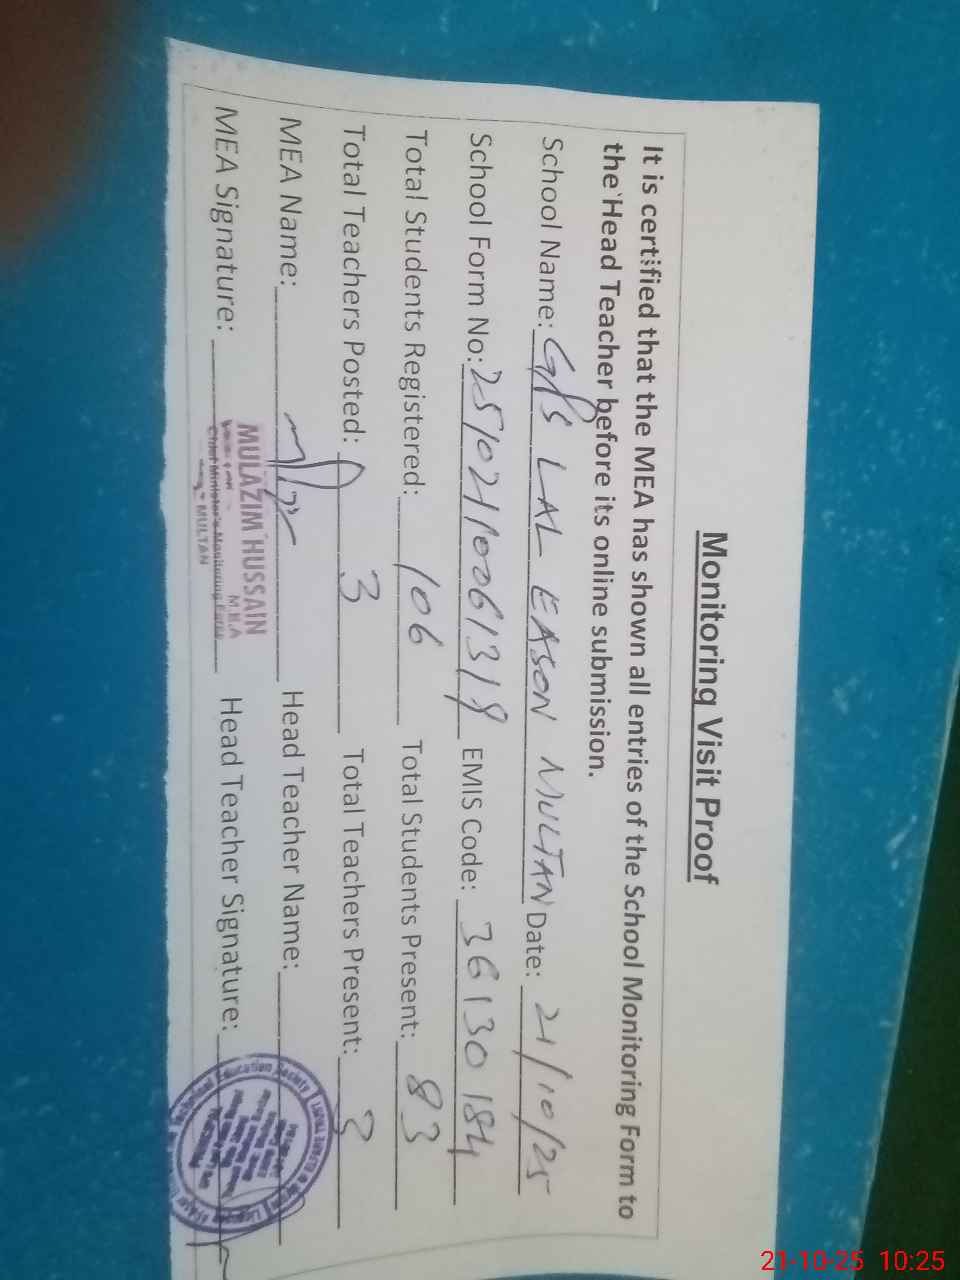 Monitoring Visit Proof
It is certified that the MEA has shown all entries of the School Monitoring Form to
the Head Teacher before its online submission.
School Name: GPS LAL EASON MULTAN Date: 21/10/25
School Form No: EMIS Code: 36130184
Total Students Registered: 106 Total Students Present: 83
Total Teachers Posted: 3 Total Teachers Present: 3
MEA Name: Head Teacher Name:
MEA Signature: Head Teacher Signature:
MULAZIM HUSSAIN
M.E.A
Chief Minister's Monitoring Force
MULTAN
Education Society
21-10-25 10:25